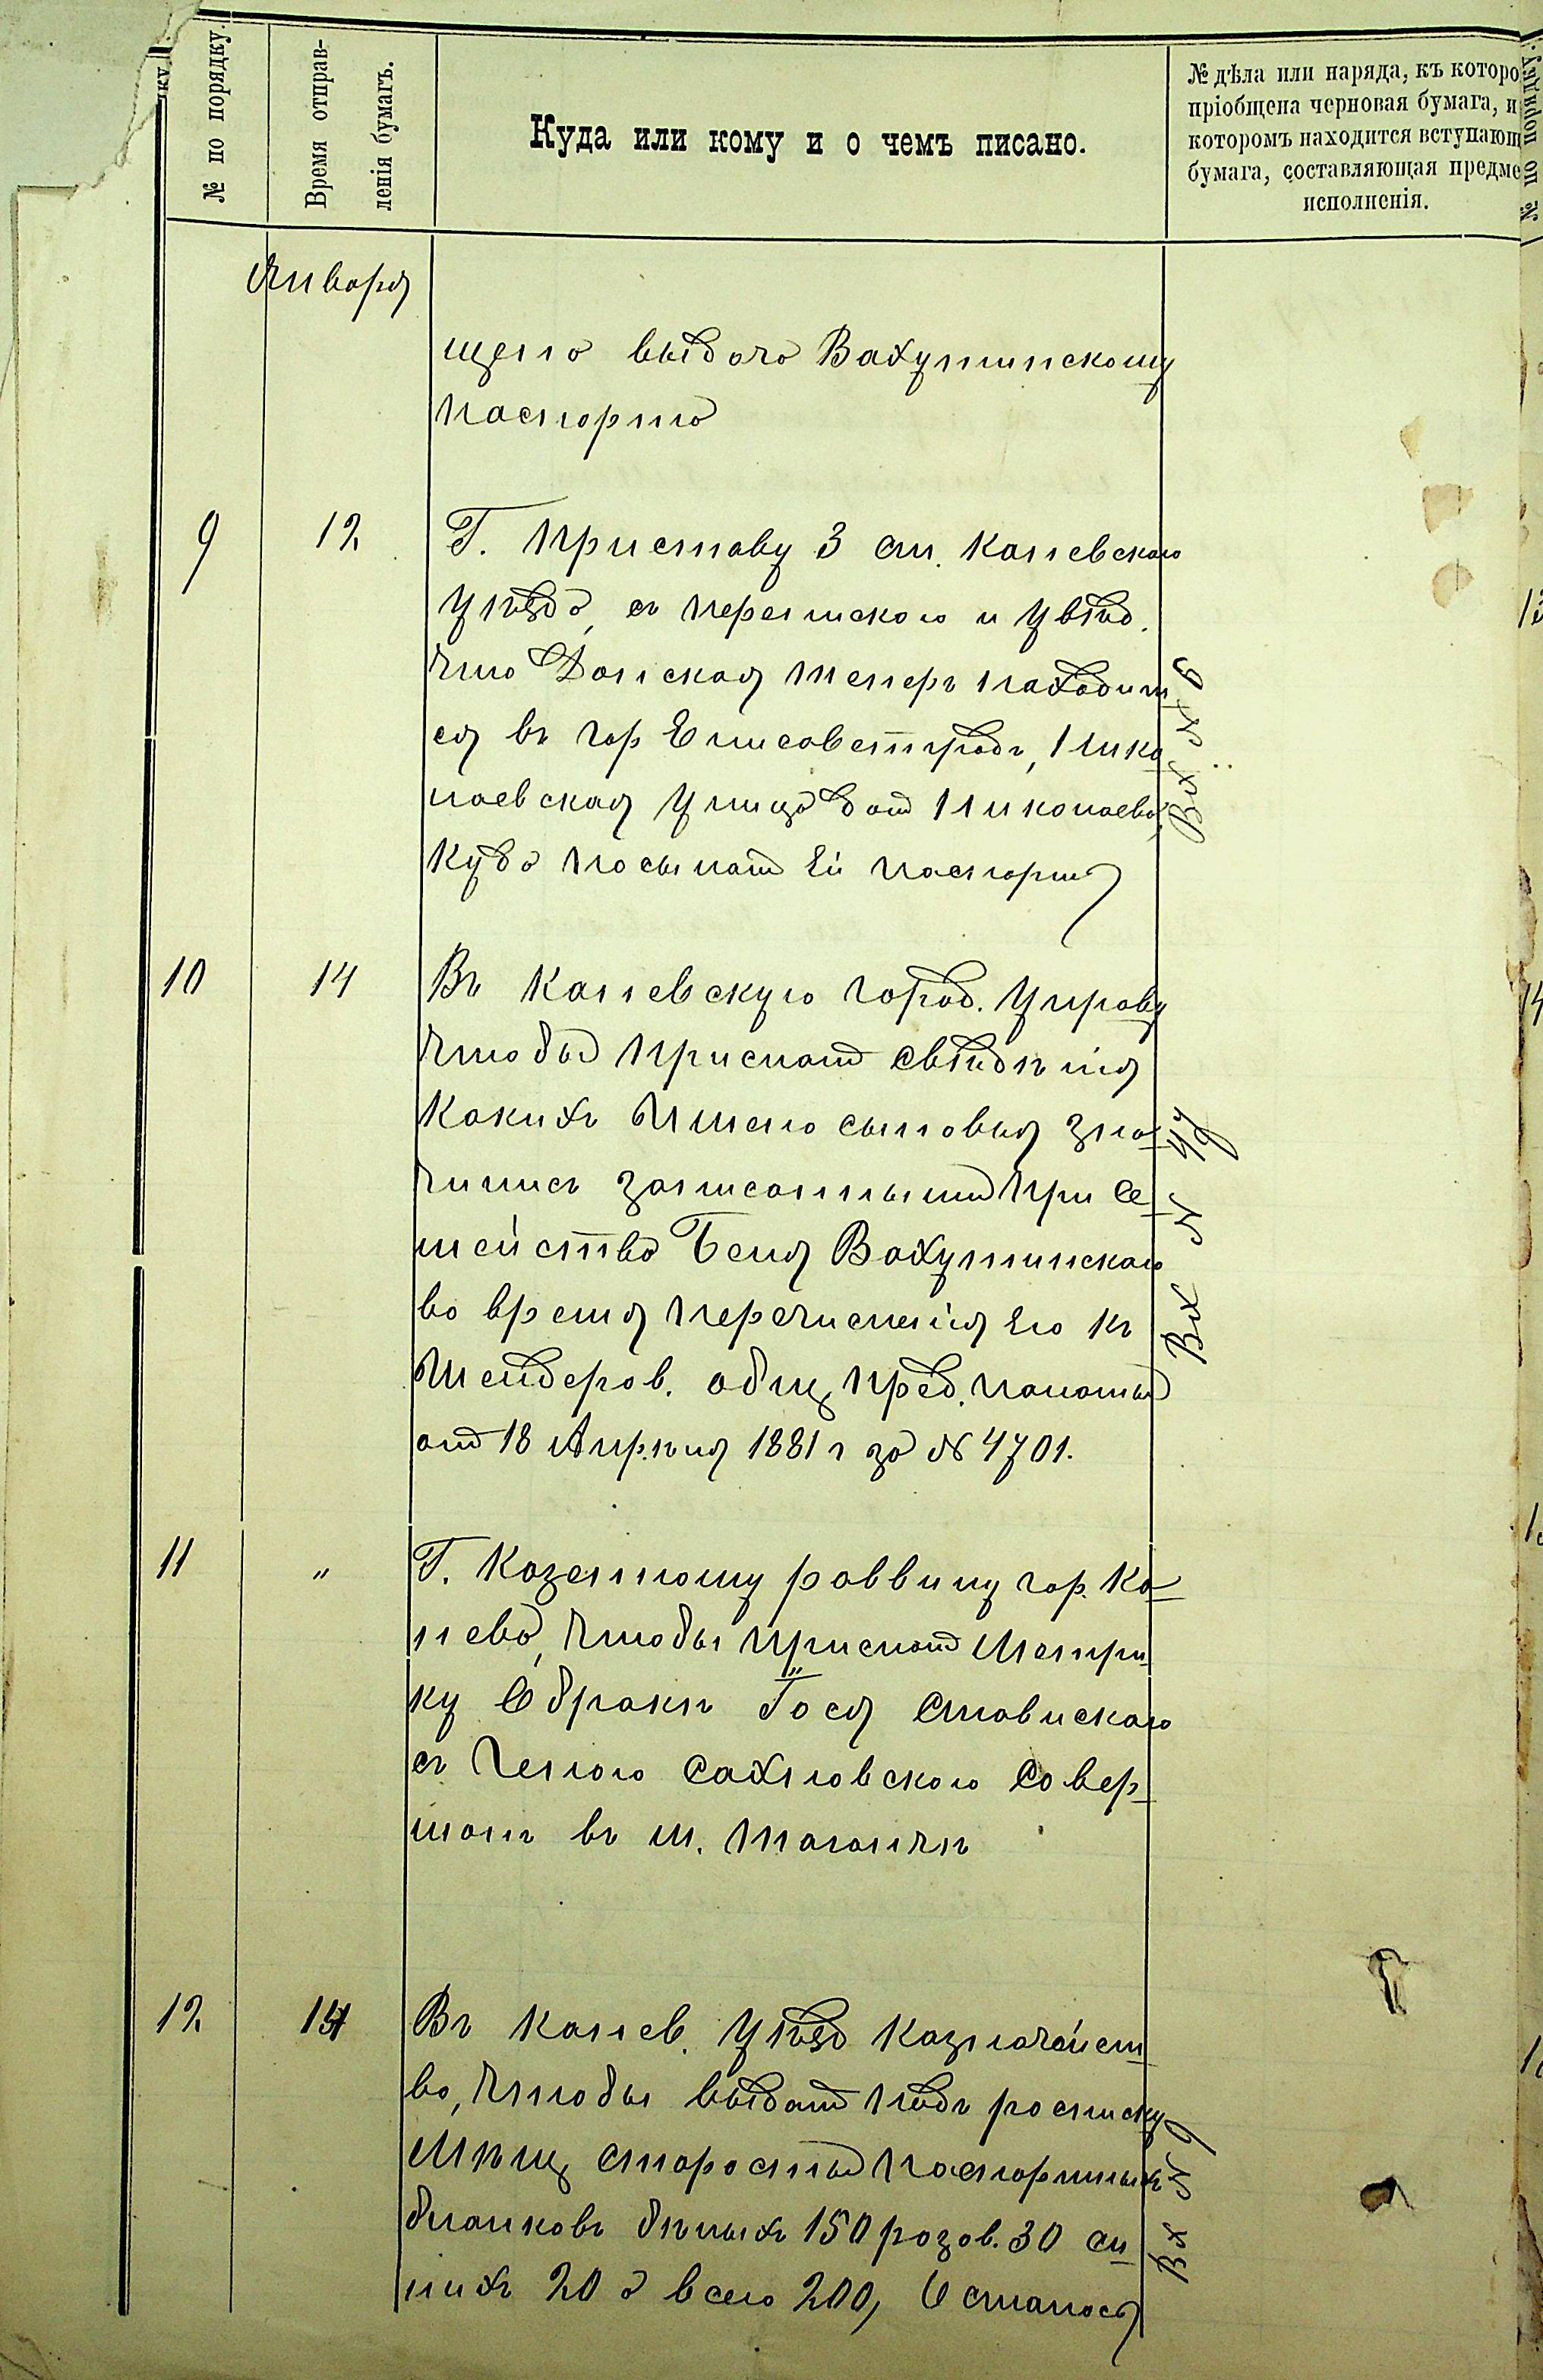 № по порядку.
Время отправ-
ленія бумагъ.
Куда или кому и о чемъ писано.
№ дѣла или наряда, къ которо
пріобщена черновая бумага, и
которомъ находится вступающ
бумага, составляющая предме
исполненія.
№ по порядку.
Января
щено выдачо Вахутинскому
паспорто
9 12 Г. Приставу 3 ст. Каневского
уѣзда, съ перепискою и увѣд.
что Донская теперь находит
ся въ гор Елисаветградъ, Нико
лаевская улица дом Николаева,
куда посылат Ей паспортъ
Вх № 6
10 14 Въ Каневскую город. управу
чтобы прислат свѣдѣнія
какихъ Имено сыновья зна
чились записанными при се
мействѣ Беня Вахутинского
во время перечисленія его къ
Шендеров. общ, пред. палаты
от 18 Апрѣля 1881 г за № 4701.
Вх №
11 " Г. Казенному раввину гор. Ка
нева, чтобы прислат метри
ку О бракѣ Гося Ставиского
съ Ченою Сахновского совер
шонъ въ м. Таганчѣ
12 14 Въ Канев. уѣзд казначейст
во, чтобы выдат подъ росписку
Мѣщ, старосты паспортныхъ
бланковъ бѣлыхъ 150 розов. 30 си
нихъ 20 а всего 200, Осталось
Вх №